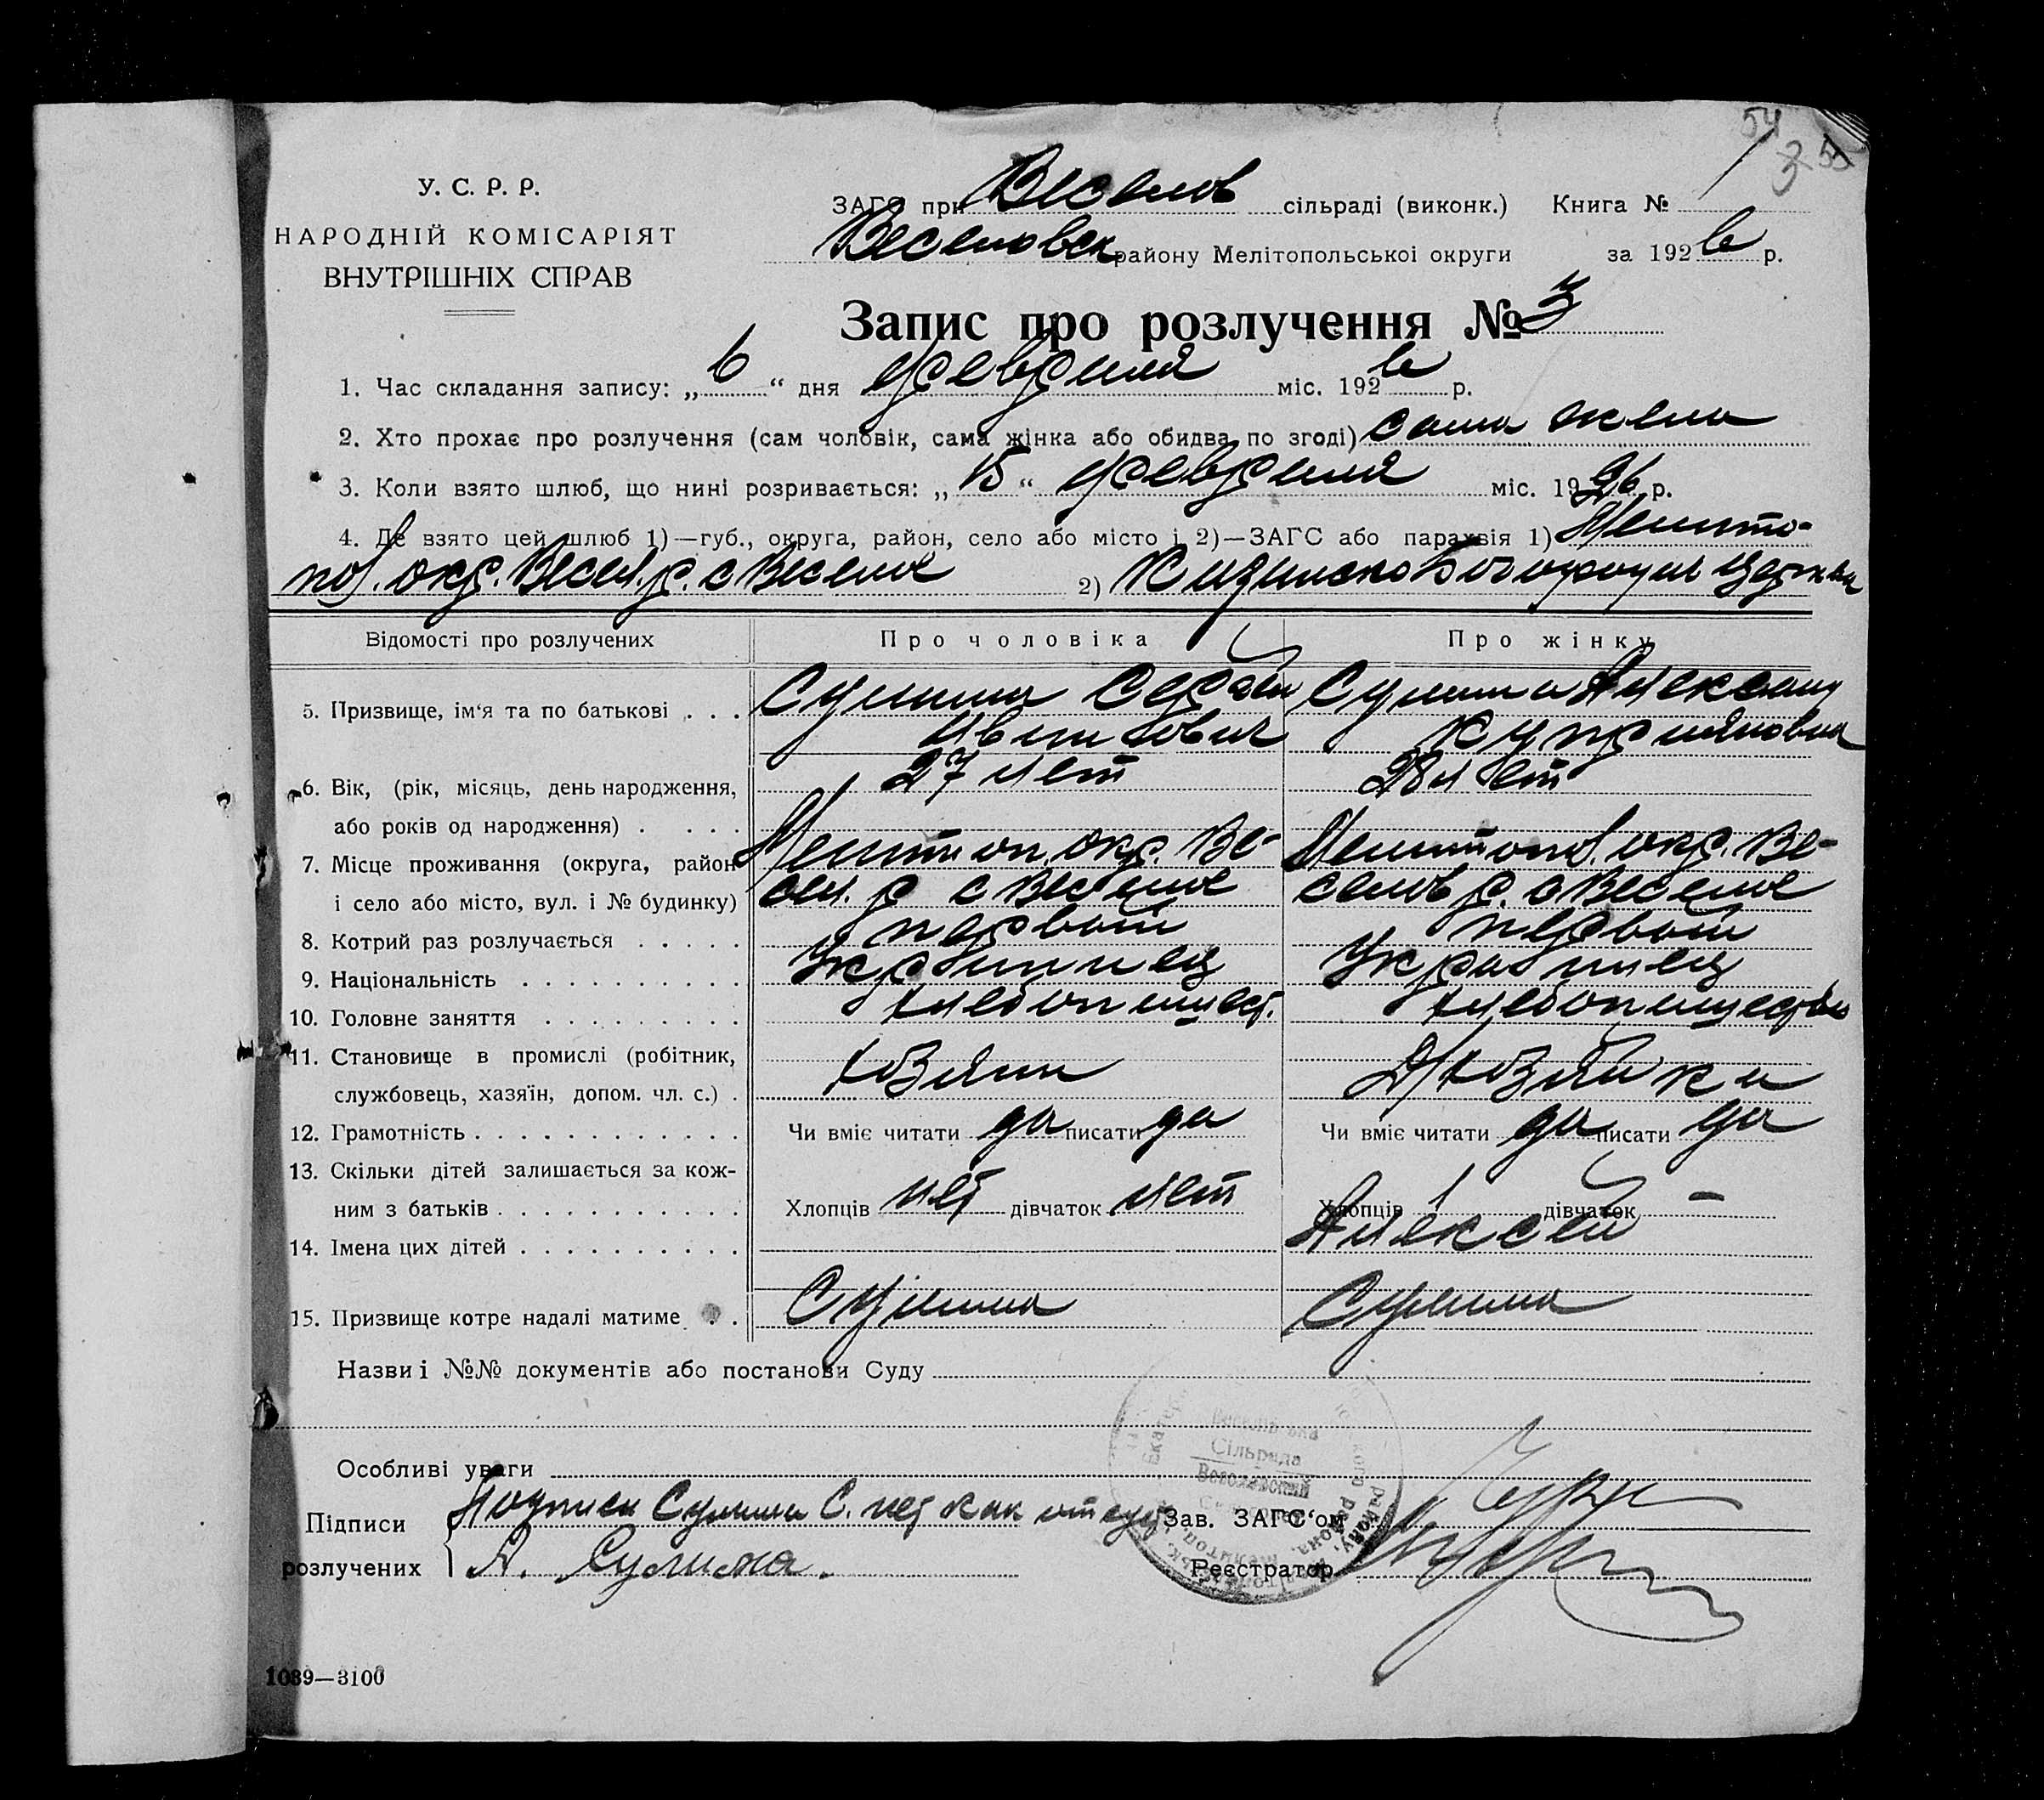 54
3 55
У. С. Р. Р.
НАРОДНІЙ КОМІСАРІЯТ
ВНУТРІШНІХ СПРАВ
ЗАГС при Веселов сільраді (виконк.) Книга № 1
Веселовск району Мелітопольськоі округи за 1926 р.
Запис про розлучення № 3
1. Час складання запису: „6“ дня февраля міс. 1926 р.
2. Хто прохає про розлучення (сам чоловік, сама жінка або обидва по згоді) сама жена
3. Коли взято шлюб, що нині розривається: „15“ февраля міс. 19 р.
4. Де взято цей шлюб 1)—губ., округа, район, село або місто і 2)—ЗАГС або парахвія 1) Мелито-
пол. окр. Весел. р. с Веселое 2) церква
Відомості про розлучених Про чоловіка Про жінку
5. Призвище, ім‘я та по батькові . . . Сулима Сергей Сулима Александ
Иванович Куприяновна
6. Вік, (рік, місяць, день народження, 27 лет 28 лет
або років од народження) . . . .
7. Місце проживання (округа, район Мелитоп. окр. Ве- Мелитопол. окр. Ве-
і село або місто, вул. і № будинку) сел. р с Веселое селов р. с Веселое
8. Котрий раз розлучається . . . . . первый первый
9. Національність . . . . . . . . . . Украинец Украинец
10. Головне заняття . . . . . . . . . хлебопашест. хлебопашество
11. Становище в промислі (робітник,
службовець, хазяїн, допом. чл. с.) . хозяин Д/хозяйка
12. Грамотність . . . . . . . . . . . . Чи вміє читати да писати да Чи вміє читати да писати да
13. Скільки дітей залишається за кож-
ним з батьків . . . . . . . . . . . Хлопців нет дівчаток нет Хлопців 1 дівчаток —
14. Імена цих дітей . . . . . . . . . . Алексей
15. Призвище котре надалі матиме . . Сулима Сулима
Назви і №№ документів або постанови Суду
Особливі уваги
Сільрада
Підписи Подписи Сулима С. нет как Зав. ЗАГС‘ом
розлучених А. Сулима. Реєстратор
1089—3100